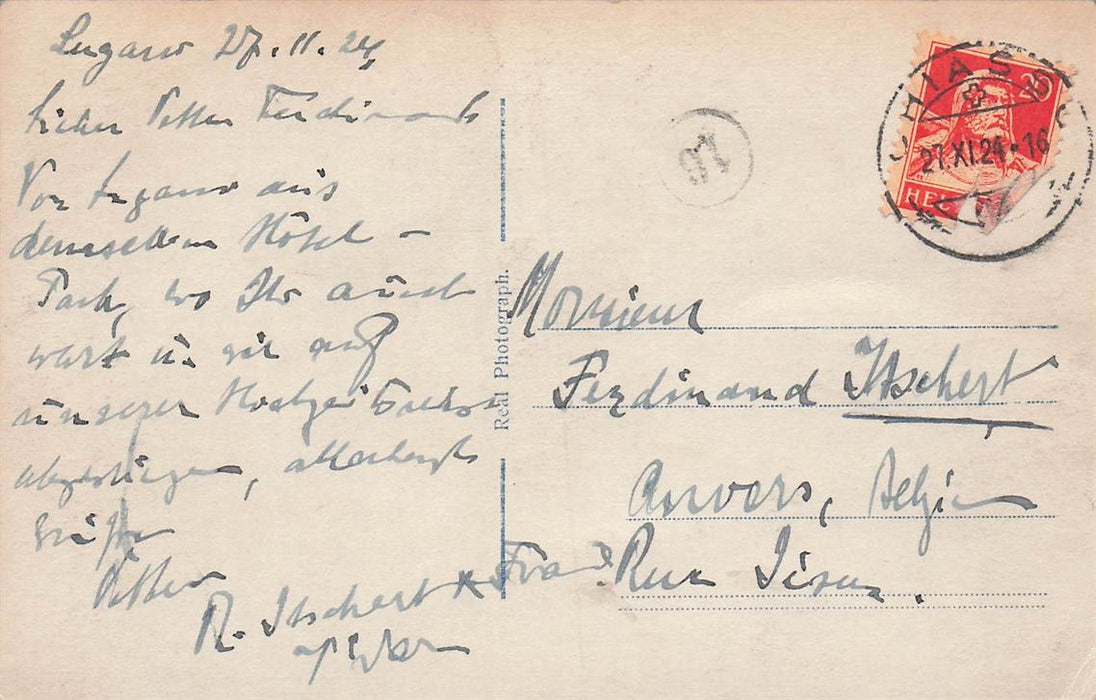 Lugano 27.11.24
Lieber Vetter Ferdinand
Von Lugano aus
demselben Hôtel
Park, wo Ihr auch
wart u. wir auf
unserer Hochzeitsreise
abgestiegen, allerherzl.
Grüße
Vetter
R. Itschert & Frau
Real Photograph.
16
CHIASSO
27.XI.24-16
20
HEL
Monsieur
Ferdinand Itschert
Anvers, Belgien
Rue